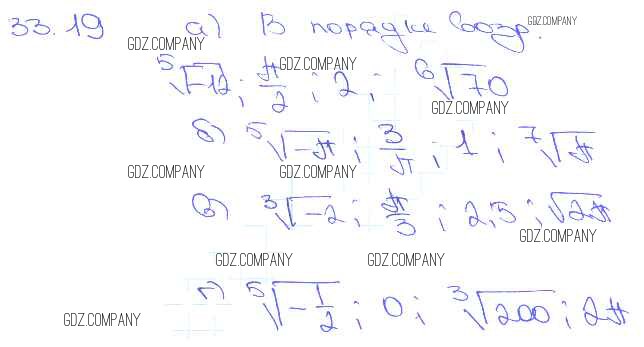 33.19 а) В порядке возр. GDZ.COMPANY
GDZ.COMPANY
⁵√-12; π/2; 2; ⁶√70
GDZ.COMPANY
GDZ.COMPANY
б) ⁵√-π; 3/π; 1; ⁷√π
GDZ.COMPANY GDZ.COMPANY
в) ³√-2; π/3; 2,5; √2π
GDZ.COMPANY
GDZ.COMPANY GDZ.COMPANY
г) ⁵√-1/2; 0; ³√200; 2π
GDZ.COMPANY